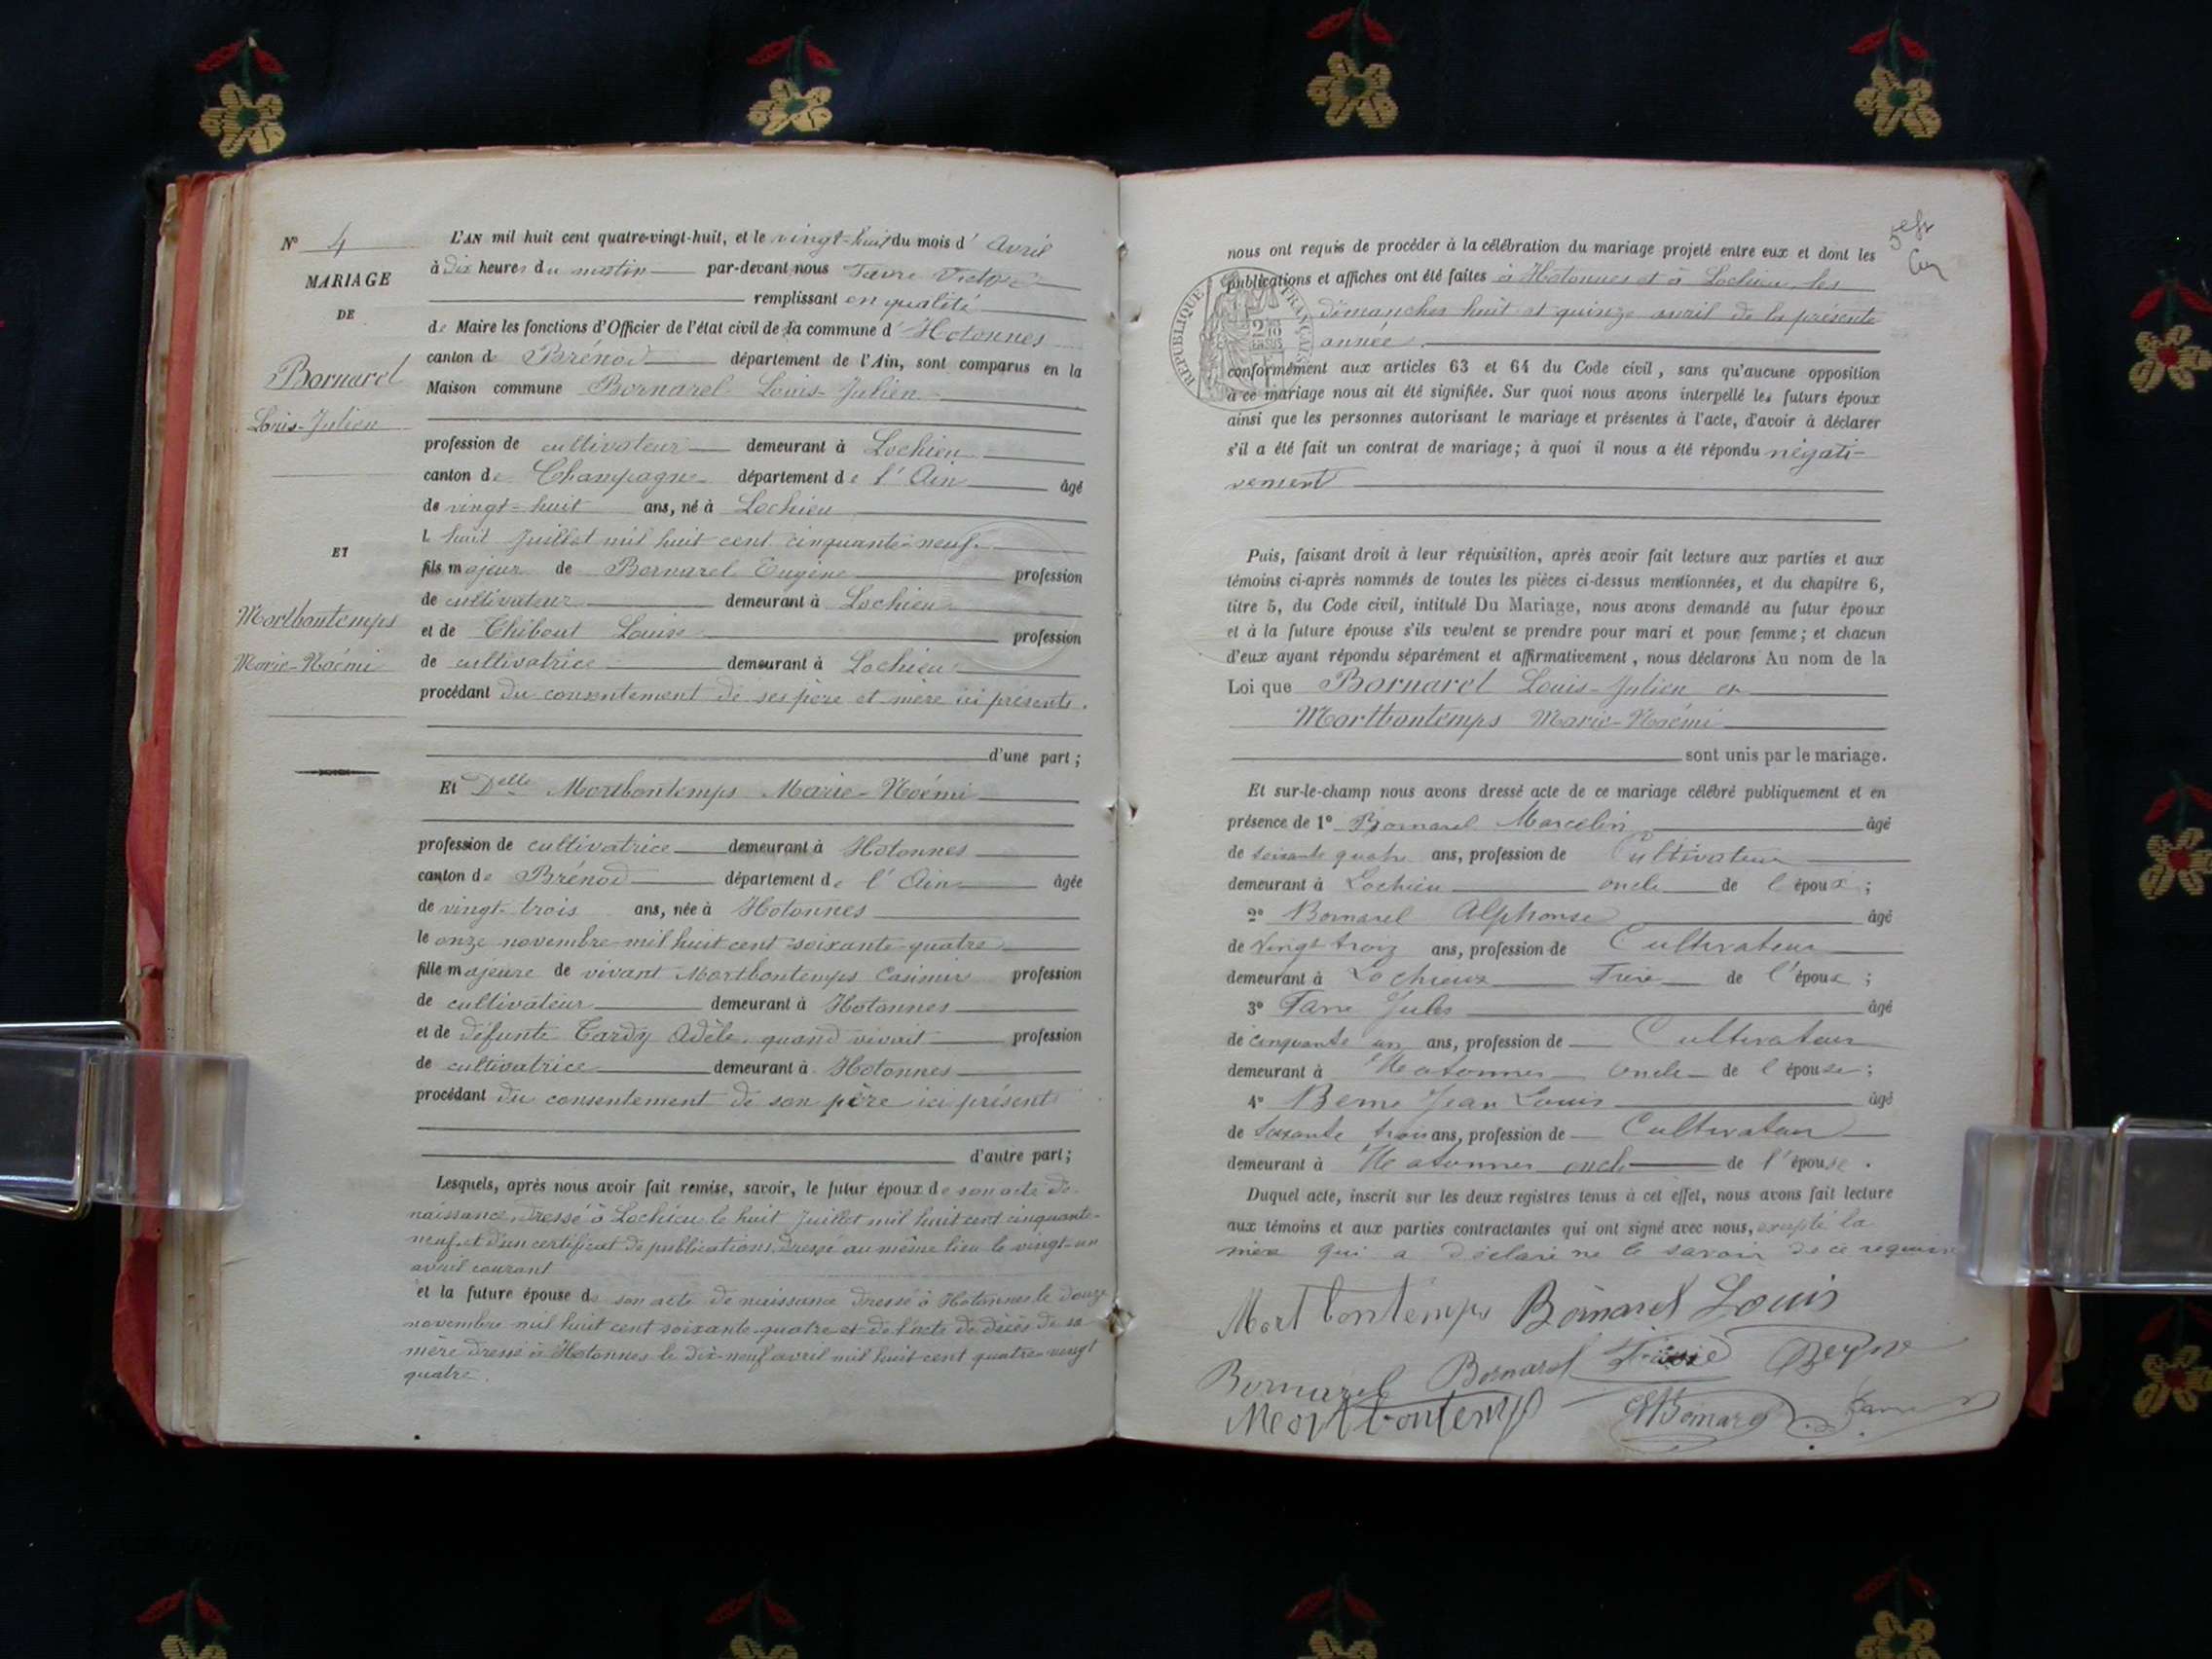 N° 4
MARIAGE
DE
Bornarel
Louis-Julien
ET
Mortbontemps
Marie-Noémi
L'AN mil huit cent quatre-vingt-huit, et le vingt-huit du mois d'Avril
à dix heures du matin par-devant nous Favre Victor
remplissant en qualité
de Maire les fonctions d'Officier de l'état civil de la commune d'Hotonnes
canton de Brénod département de l'Ain, sont comparus en la
Maison commune Bornarel Louis-Julien
profession de cultivateur demeurant à Lochieu
canton de Champagne département de l'Ain âgé
de vingt-huit ans, né à Lochieu
l huit Juillet mil huit cent cinquante-neuf
fils majeur de Bornarel Eugène profession
de cultivateur demeurant à Lochieu
et de Thibout Louise profession
de cultivatrice demeurant à Lochieu
procédant du consentement de ses père et mère ici présents.
d'une part;
Et Delle Mortbontemps Marie-Noémi
profession de cultivatrice demeurant à Hotonnes
canton de Brénod département de l'Ain âgée
de vingt-trois ans, née à Hotonnes
le onze novembre mil huit cent soixante-quatre
fille majeure de vivant Mortbontemps Casimir profession
de cultivateur demeurant à Hotonnes
et de défunte Tardy Adèle, quand vivait profession
de cultivatrice demeurant à Hotonnes
procédant du consentement de son père ici présent
d'autre part;
Lesquels, après nous avoir fait remise, savoir, le futur époux de son acte de
naissance, dressé à Lochieu le huit Juillet mil huit cent cinquante-
neuf, et d'un certificat de publications, dressé au même lieu le vingt-un
avril courant
et la future épouse de son acte de naissance dressé à Hotonnes le douze
novembre mil huit cent soixante-quatre et de l'acte de décès de sa
mère dressé à Hotonnes le dix-neuf avril mil huit cent quatre-vingt
quatre.
nous ont requis de procéder à la célébration du mariage projeté entre eux et dont les
publications et affiches ont été faites à Hotonnes et à Lochieu, les
dimanches huit et quinze avril de la présente
année.
RÉPUBLIQUE FRANÇAISE
conformément aux articles 63 et 64 du Code civil, sans qu'aucune opposition
à ce mariage nous ait été signifiée. Sur quoi nous avons interpellé les futurs époux
ainsi que les personnes autorisant le mariage et présentes à l'acte, d'avoir à déclarer
s'il a été fait un contrat de mariage; à quoi il nous a été répondu négati-
vement
Puis, faisant droit à leur réquisition, après avoir fait lecture aux parties et aux
témoins ci-après nommés de toutes les pièces ci-dessus mentionnées, et du chapitre 6,
titre 5, du Code civil, intitulé Du Mariage, nous avons demandé au futur époux
et à la future épouse s'ils veulent se prendre pour mari et pour femme; et chacun
d'eux ayant répondu séparément et affirmativement, nous déclarons Au nom de la
Loi que Bornarel Louis-Julien et
Mortbontemps Marie-Noémi
sont unis par le mariage.
Et sur-le-champ nous avons dressé acte de ce mariage célébré publiquement et en
présence de 1° Bornarel Marcelin âgé
de soixante quatre ans, profession de Cultivateur
demeurant à Lochieu oncle de l'époux;
2° Bornarel Alphonse âgé
de vingt troiz ans, profession de Cultivateur
demeurant à Lochieux Frère de l'époux;
3° Favre Jules âgé
de cinquante un ans, profession de Cultivateur
demeurant à Hotonnes oncle de l'épouse;
4° Berne Jean Louis âgé
de soixante trois ans, profession de Cultivateur
demeurant à Hotonnes oncle de l'épouse.
Duquel acte, inscrit sur les deux registres tenus à cet effet, nous avons fait lecture
aux témoins et aux parties contractantes qui ont signé avec nous, excepté la
mère qui a déclaré ne le savoir de ce requise
Mortbontemps Bornarel Louis
Bornarel Bornarel
Mortbontemps